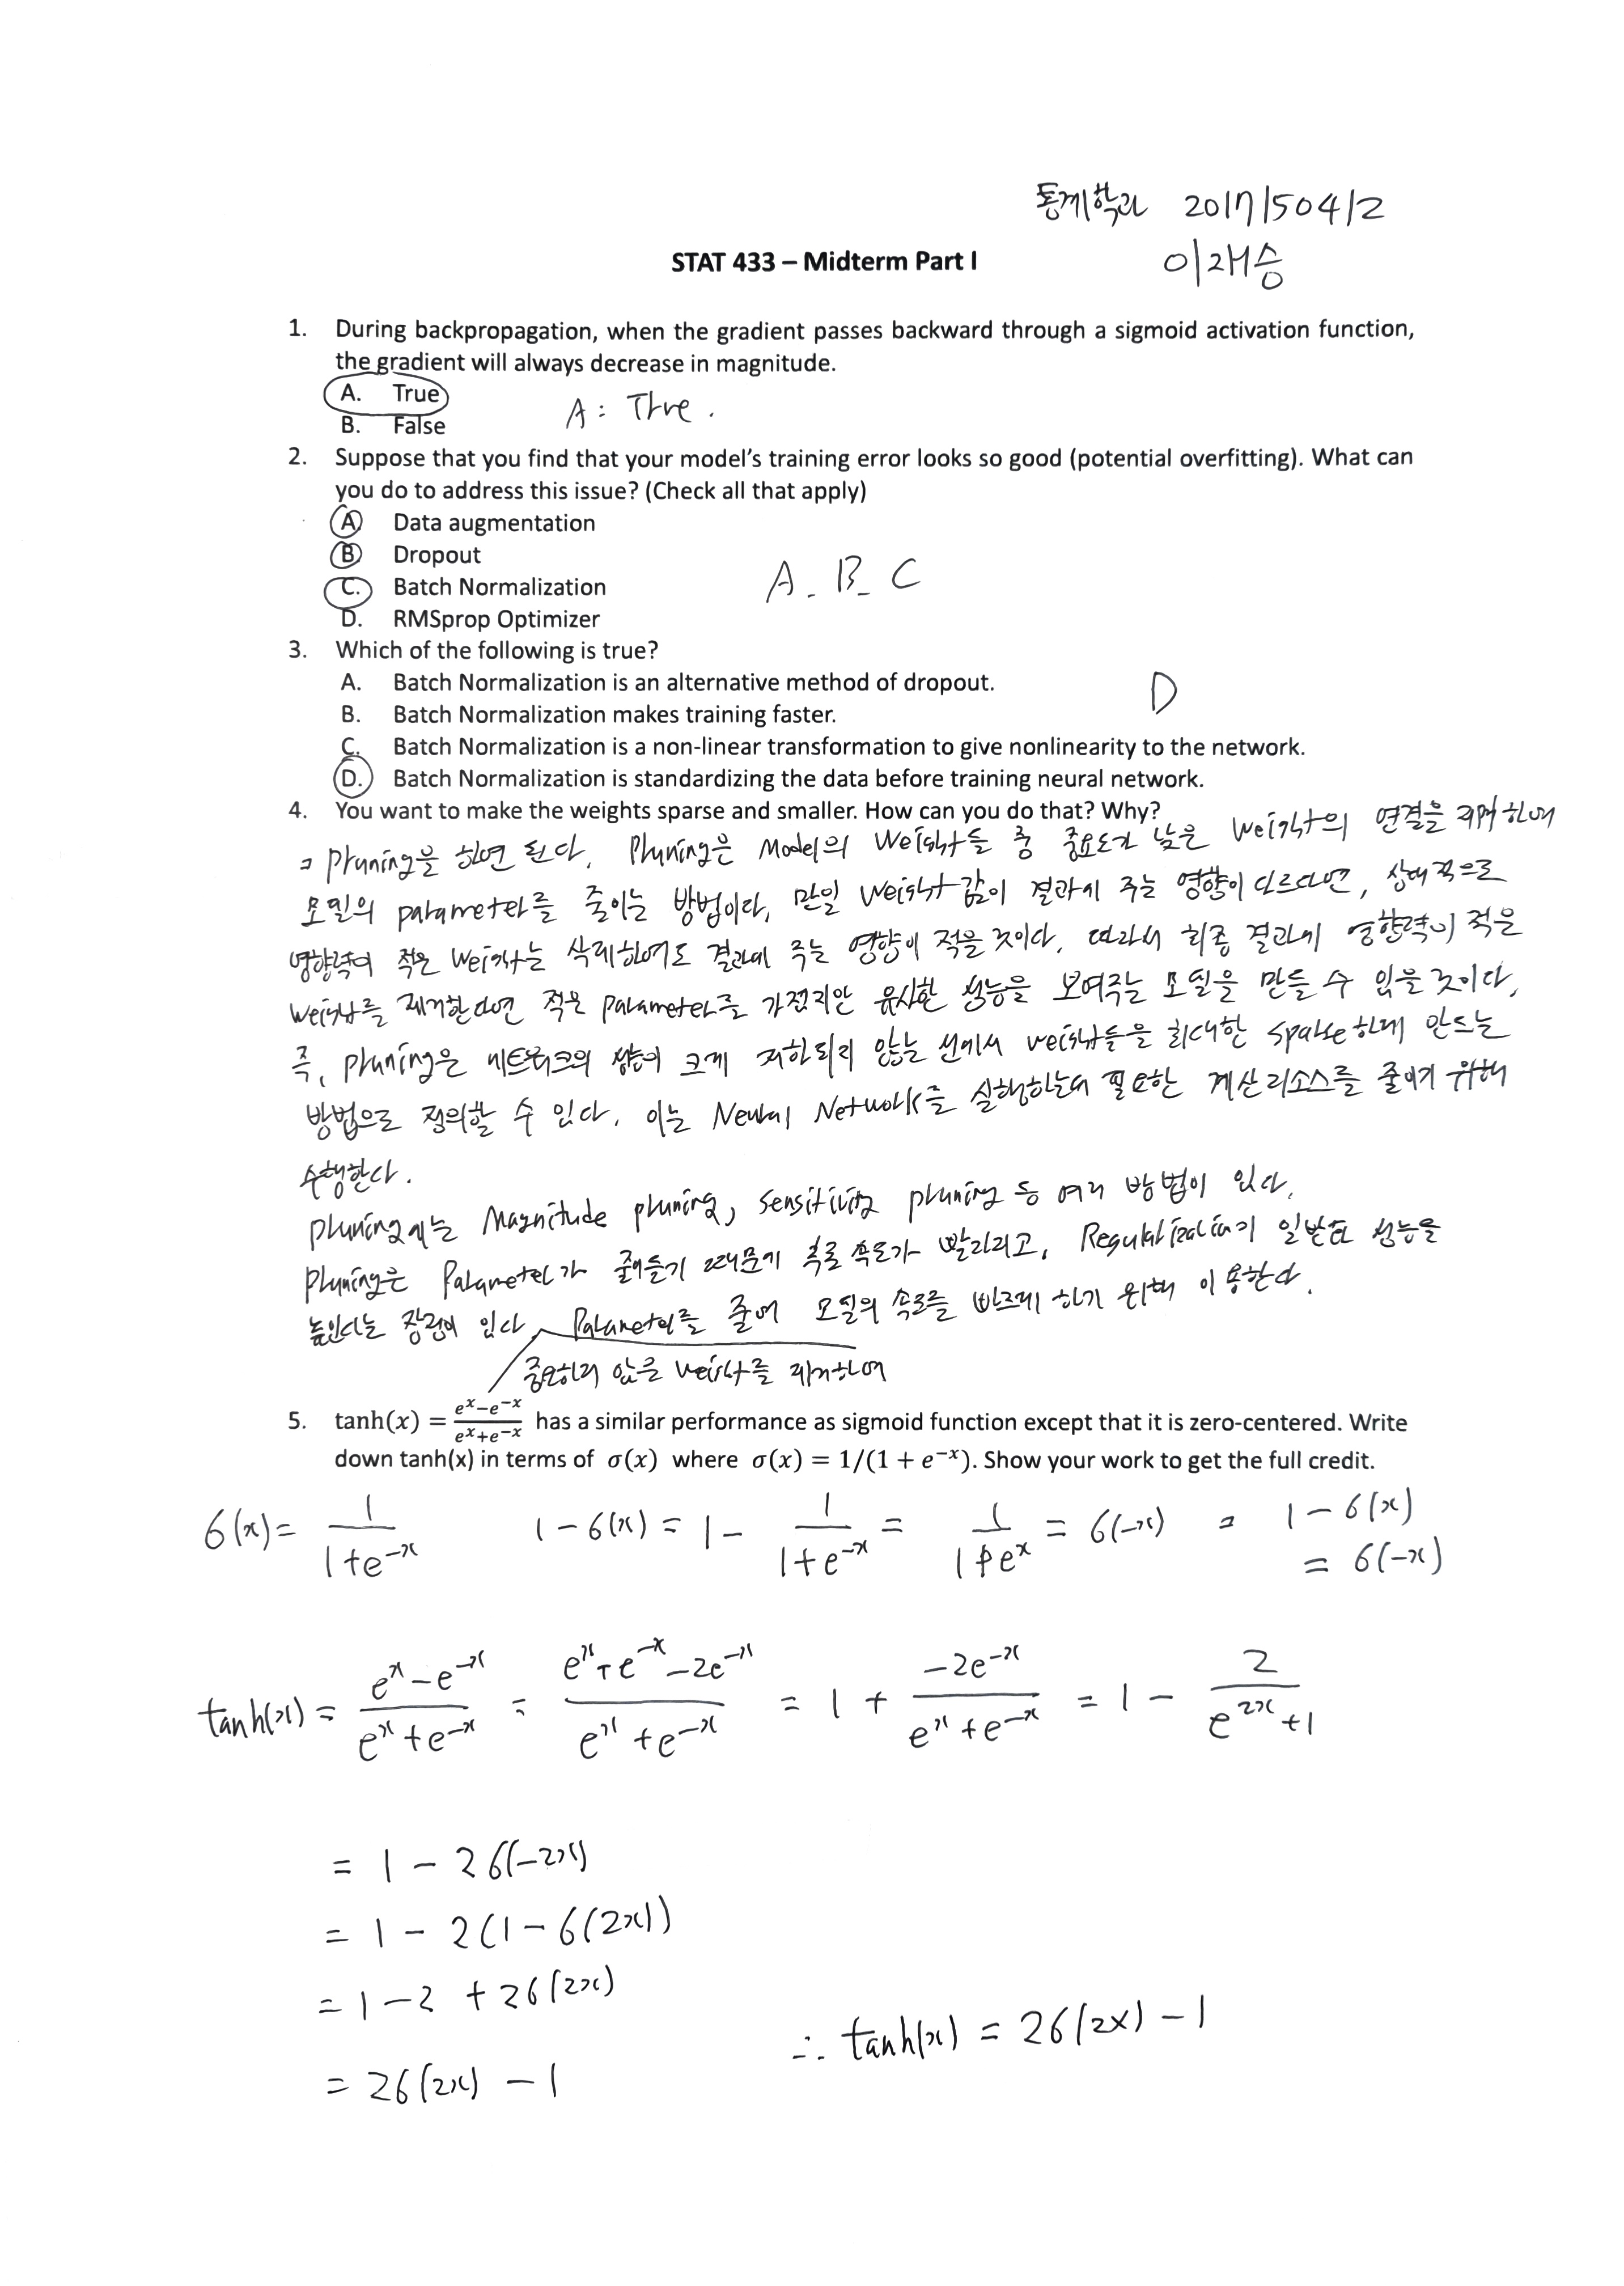 통계학과 2017150412
이재승
STAT 433 – Midterm Part I
1. During backpropagation, when the gradient passes backward through a sigmoid activation function,
the gradient will always decrease in magnitude.
A. True
A : True .
B. False
2. Suppose that you find that your model's training error looks so good (potential overfitting). What can
you do to address this issue? (Check all that apply)
A Data augmentation
B. Dropout
C. Batch Normalization
A. B. C
D. RMSprop Optimizer
3. Which of the following is true?
A. Batch Normalization is an alternative method of dropout.
D
B. Batch Normalization makes training faster.
C. Batch Normalization is a non-linear transformation to give nonlinearity to the network.
D. Batch Normalization is standardizing the data before training neural network.
4. You want to make the weights sparse and smaller. How can you do that? Why?
⇒ pruning을 하면 된다. Pruning은 Model의 Weight들 중 중요도가 낮은 weight의 연결을 제거하여
모델의 parameter를 줄이는 방법이다. 만일 weight값이 결과에 주는 영향이 다르다면, 상대적으로
영향력이 적은 weight는 삭제하여도 결과에 주는 영향이 적을 것이다. 따라서 최종 결과에 영향력이 적은
weight를 제거한다면 적은 parameter를 가졌지만 유사한 성능을 보여주는 모델을 만들 수 있을 것이다.
즉, pruning은 네트워크의 성능이 크게 저하되지 않는 선에서 weight들을 최대한 sparse하게 만드는
방법으로 정의할 수 있다. 이는 Neural Network를 실행하는데 필요한 계산리소스를 줄이기 위해
수행한다.
pruning에는 Magnitude pruning, sensitivity pruning 등 여러 방법이 있다.
pruning은 Parameter가 줄어들기 때문에 추론 속도가 빨라지고, Regularization이 일반화 성능을
높인다는 장점이 있다 Parameter를 줄여 모델의 속도를 빠르게 하기 위해 이용한다.
중요하지 않은 weight를 제거하여
5. tanh(x) = (e^x−e^−x)/(e^x+e^−x) has a similar performance as sigmoid function except that it is zero-centered. Write
down tanh(x) in terms of σ(x) where σ(x) = 1/(1 + e^−x). Show your work to get the full credit.
σ(x) = 1/(1+e^−x) 1 − σ(x) = 1 − 1/(1+e^−x) = 1/(1+e^x) = σ(−x) ⇒ 1 − σ(x)
= σ(−x)
tanh(x) = (e^x − e^−x)/(e^x + e^−x) = (e^x + e^−x − 2e^−x)/(e^x + e^−x) = 1 + (−2e^−x)/(e^x + e^−x) = 1 − 2/(e^2x + 1)
= 1 − 2σ(−2x)
= 1 − 2(1 − σ(2x))
= 1 − 2 + 2σ(2x)
= 2σ(2x) − 1
∴ tanh(x) = 2σ(2x) − 1